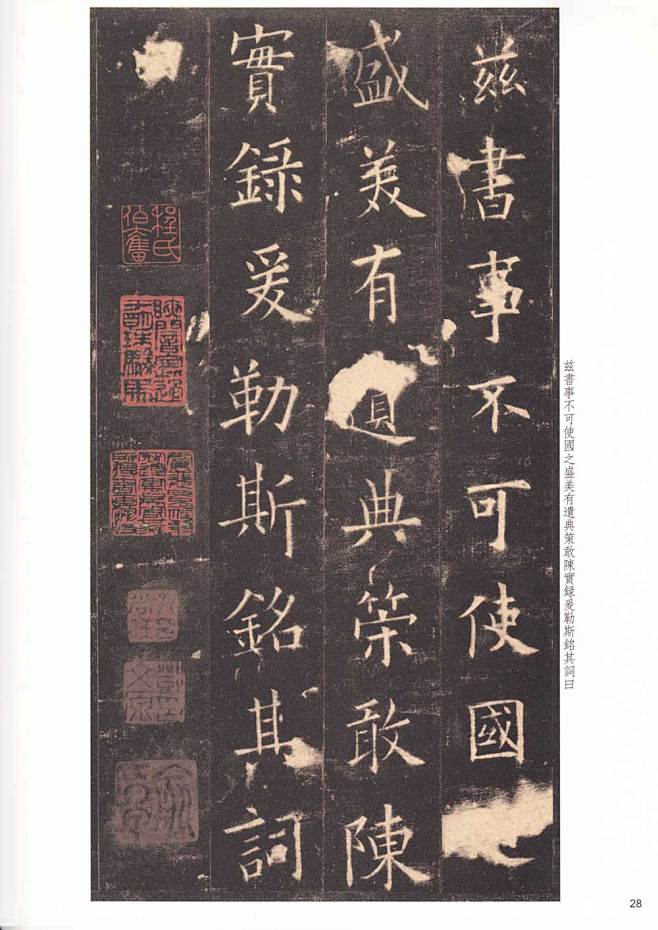 兹書事不可使國
盛美有遺典筞敢陳
實録爰勒斯銘其詞
程氏伯奮
兹書事不可使國之盛美有遺典策敢陳實録爰勒斯銘其詞曰
28